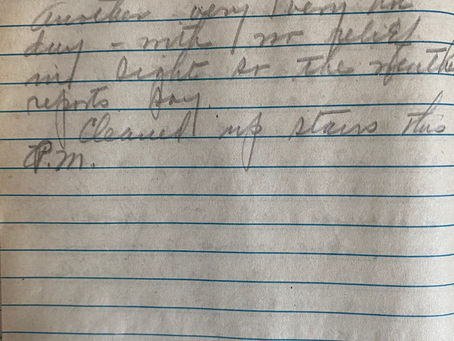 Another very, very
day - with no relief
in sight so the
reports say.
Cleaned up stairs this
P.M.